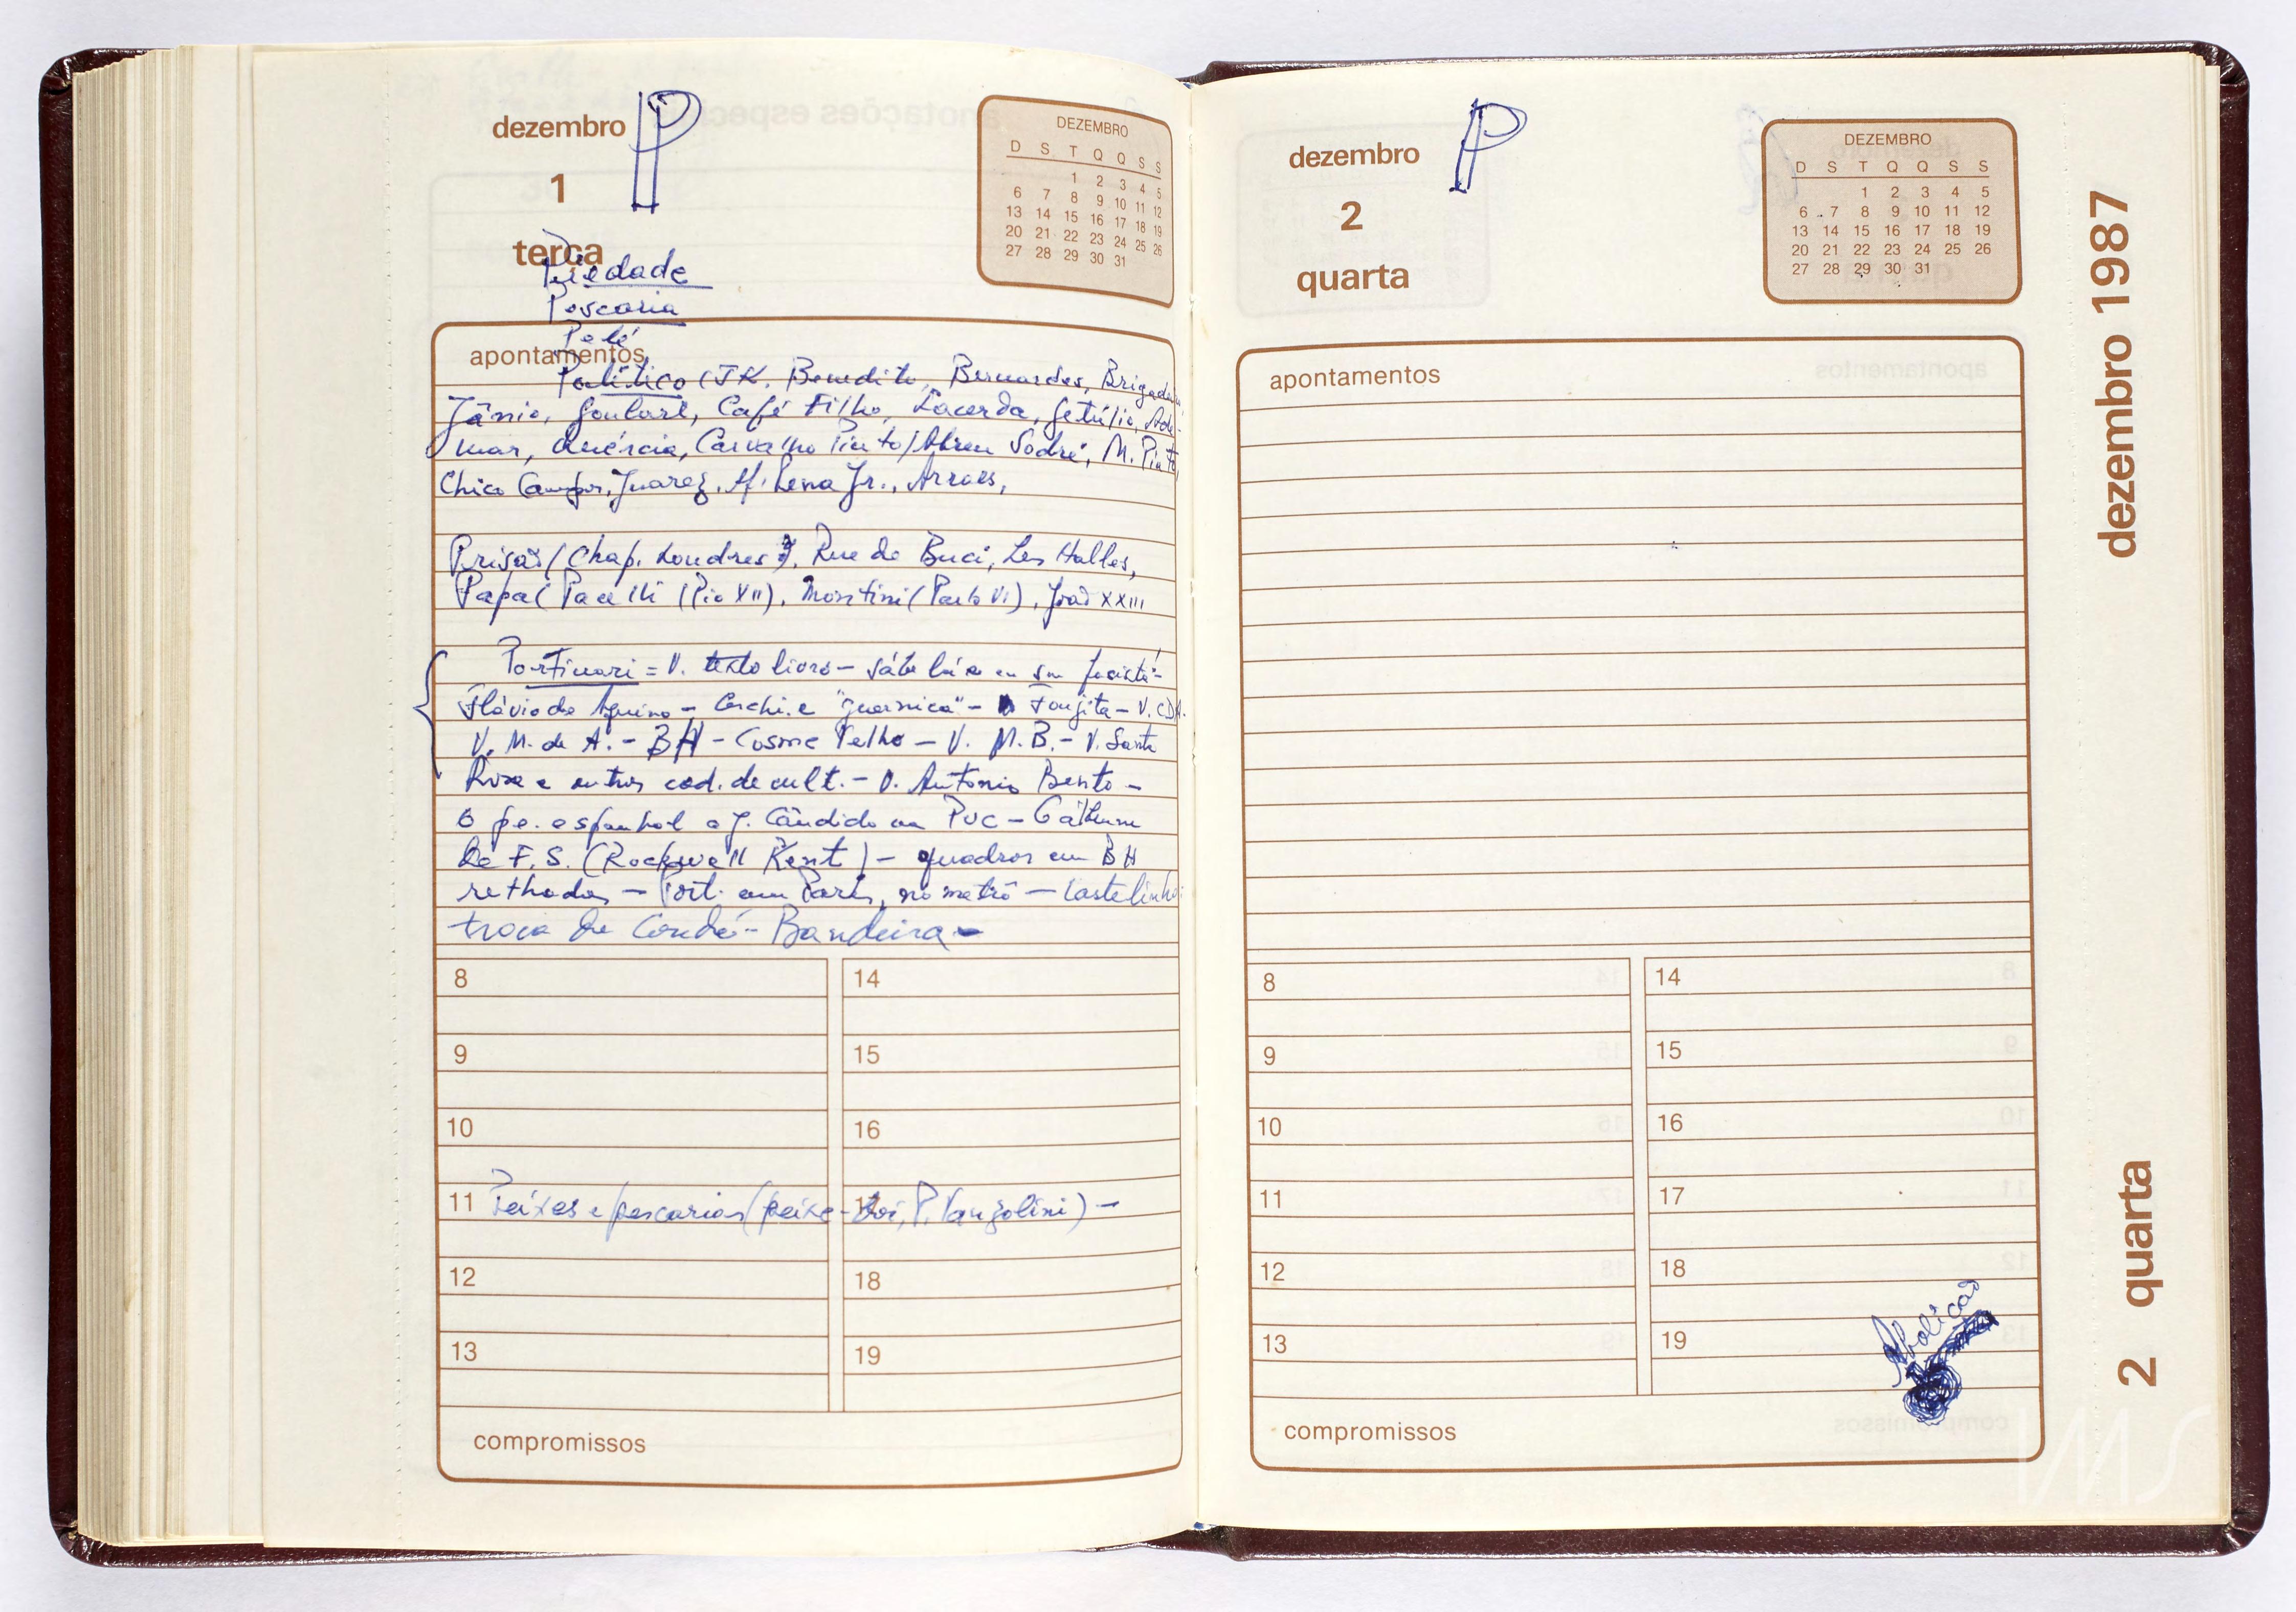 dezembro P
1
terça
Piedade
Pescaria
Pelé
apontamentos
Político (JK, Benedito, Bernardes, Brigadeiro
Jânio, Goulart, Café Filho, Lacerda, Getúlio, Ade-
mar, Quércia, Carvalho Pinto, Abreu Sodré, M. Pinto,
Chico Campos, Juarez, N. Lena Jr., Arraes,
Prisão (Chap. Londres), Rue de Buci, Les Halles,
Papa (Pacelli (Pio XII), Montini (Paulo VI), João XXIII
Portinari = V. texto livro - em fascista -
Flávio de Aquino - e "guernica" - Foujita - V. CDA.
V. M. de A. - BH - Cosme Velho - V. M.B. - V. Santa
Rosa e outros cad. de cult. - V. Antonio Bento -
o pe. espanhol e J. Cândido na PUC -
de F. S. (Rockwell Kent) - quadros em BH
- Port. em Paris, no metrô - Castelinho:
troca de Condé - Bandeira -
8
14
9
15
10
16
11 Peixes e pescarias (peixe-boi, P. Vanzolini) -
17
12
18
13
19
compromissos
dezembro P
2
quarta
apontamentos
8
14
9
15
10
16
11
17
12
18
13
19
Abolição
compromissos
DEZEMBRO
D S T Q Q S S
1 2 3 4 5
6 7 8 9 10 11 12
13 14 15 16 17 18 19
20 21 22 23 24 25 26
27 28 29 30 31
DEZEMBRO
D S T Q Q S S
1 2 3 4 5
6 7 8 9 10 11 12
13 14 15 16 17 18 19
20 21 22 23 24 25 26
27 28 29 30 31
dezembro 1987
2 quarta
IMS